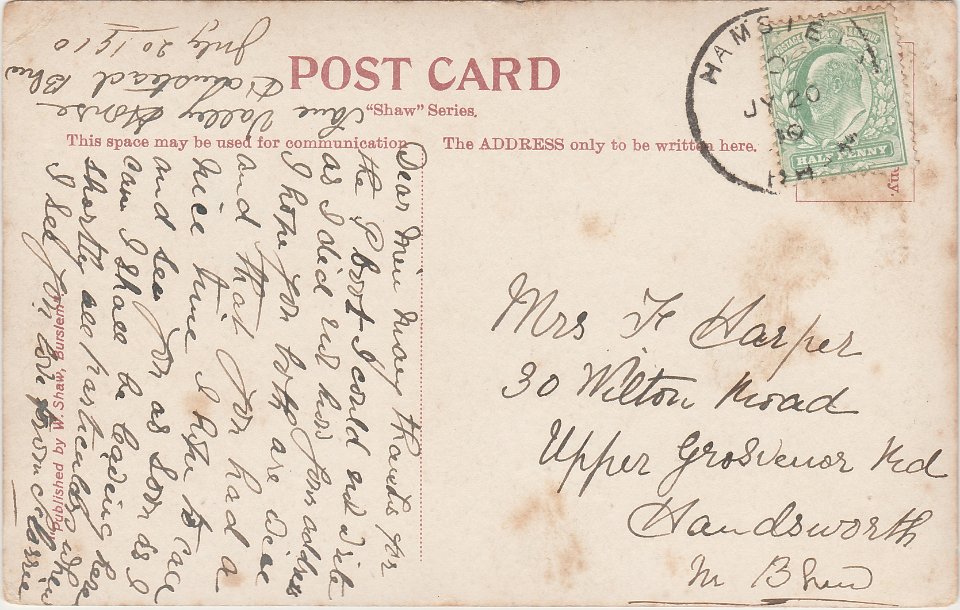 POST CARD
"Shaw" Series.
This space may be used for communication
The ADDRESS only to be written here.
HAMSTE
JY 20
10
POSTAGE
HALF PENNY
ny.
Vale Valley House
Hamstead Bhm
July 20 1910
Dear Mary thanks for
the P boot I could not write
as I did not know your address
I hope you both are nice
and that you had a
nice time I hope to call
and see you as soon as I
can I shall be leaving here
shortly all particulars when
I see you love from
Published by W. Shaw, Burslem
Mrs F Harper
30 Wilton Road
Upper Grosvenor Rd
Handsworth
Bham